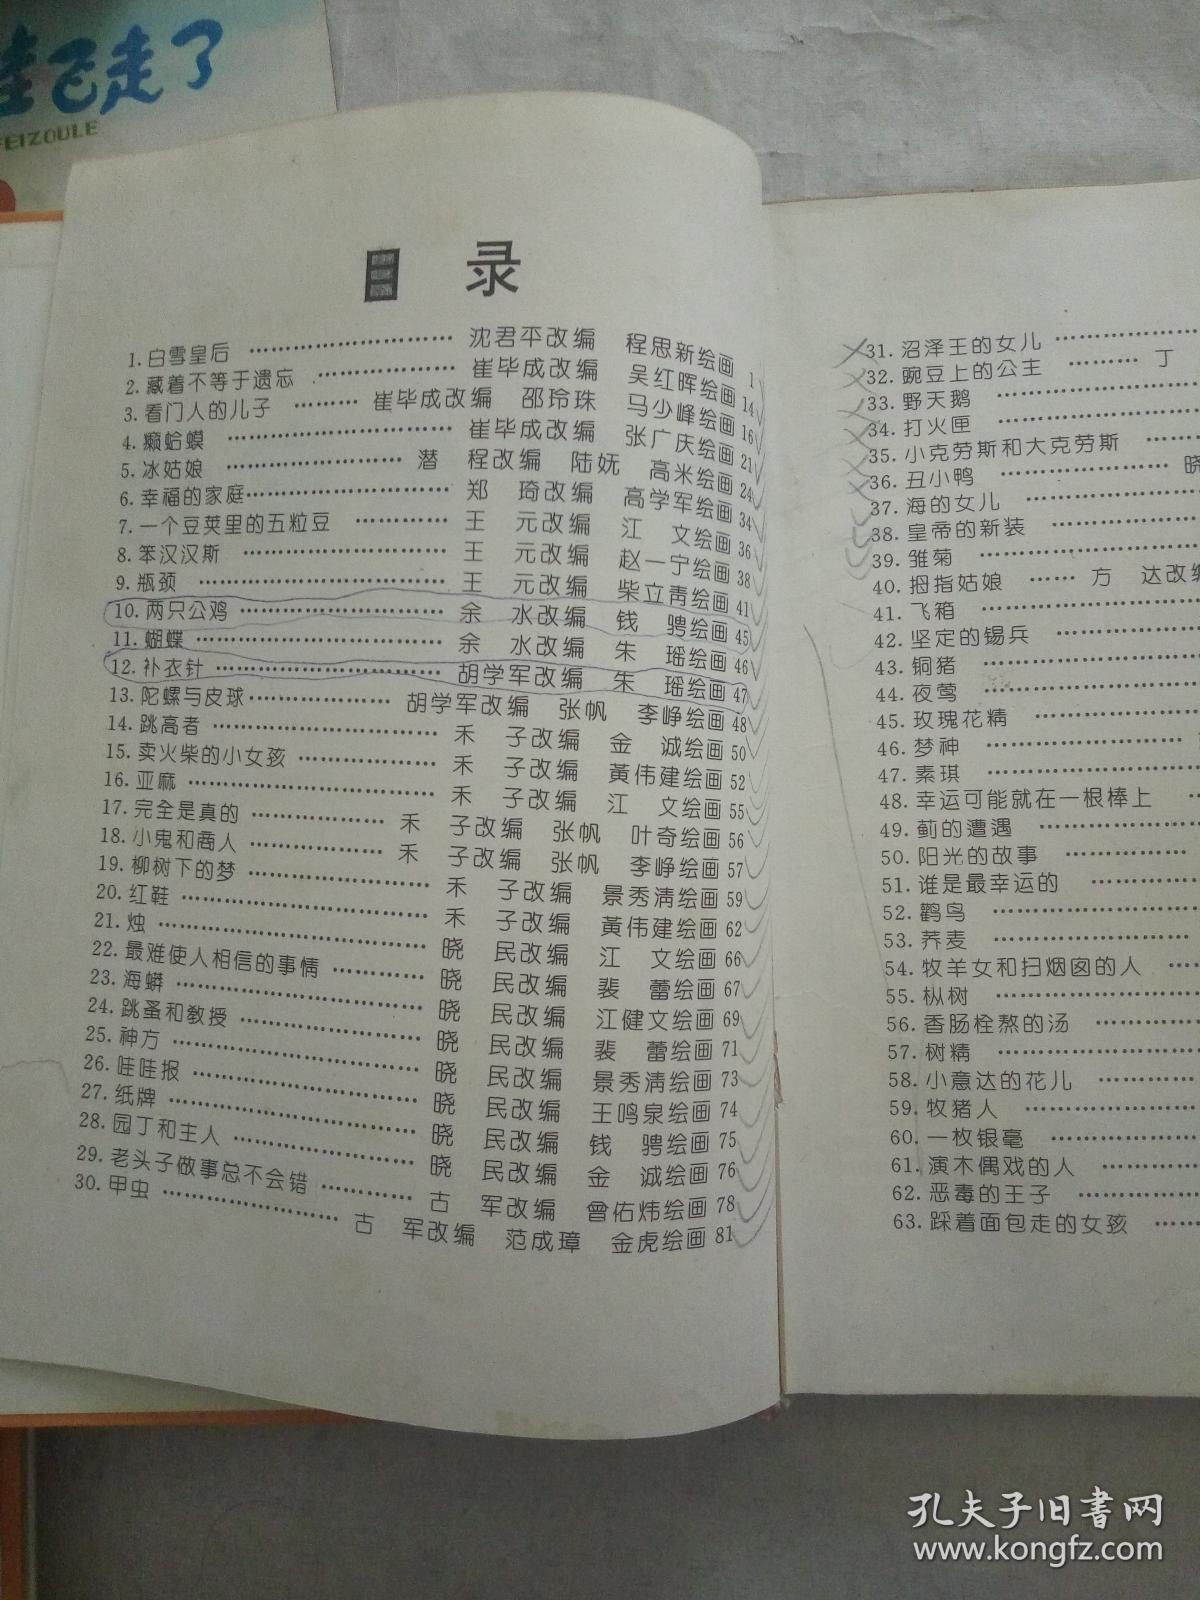 飞走了
FEIZOULE
目 录
1. 白雪皇后 …… 沈君平改编 程思新绘画 1
2. 藏着不等于遗忘 …… 崔毕成改编 吴红晖绘画 14
3. 看门人的儿子 …… 崔毕成改编 邵玲珠 马少峰绘画 16
4. 癞蛤蟆 …… 崔毕成改编 张广庆绘画 21
5. 冰姑娘 …… 潜 程改编 陆妩 高米绘画 24
6. 幸福的家庭 …… 郑 琦改编 高学军绘画 34
7. 一个豆荚里的五粒豆 …… 王 元改编 江 文绘画 36
8. 笨汉汉斯 …… 王 元改编 赵一宁绘画 38
9. 瓶颈 …… 王 元改编 柴立青绘画 41
10. 两只公鸡 …… 余 水改编 钱 骋绘画 45
11. 蝴蝶 …… 余 水改编 朱 瑶绘画 46
12. 补衣针 …… 胡学军改编 朱 瑶绘画 47
13. 陀螺与皮球 …… 胡学军改编 张帆 李峥绘画 48
14. 跳高者 …… 禾 子改编 金 诚绘画 50
15. 卖火柴的小女孩 …… 禾 子改编 黄伟建绘画 52
16. 亚麻 …… 禾 子改编 江 文绘画 55
17. 完全是真的 …… 禾 子改编 张帆 叶奇绘画 56
18. 小鬼和商人 …… 禾 子改编 张帆 李峥绘画 57
19. 柳树下的梦 …… 禾 子改编 景秀清绘画 59
20. 红鞋 …… 禾 子改编 黄伟建绘画 62
21. 烛 …… 晓 民改编 江 文绘画 66
22. 最难使人相信的事情 …… 晓 民改编 裴 蕾绘画 67
23. 海蟒 …… 晓 民改编 江健文绘画 69
24. 跳蚤和教授 …… 晓 民改编 裴 蕾绘画 71
25. 神方 …… 晓 民改编 景秀清绘画 73
26. 哇哇报 …… 晓 民改编 王鸣泉绘画 74
27. 纸牌 …… 晓 民改编 钱 骋绘画 75
28. 园丁和主人 …… 晓 民改编 金 诚绘画 76
29. 老头子做事总不会错 …… 古 军改编 曾佑炜绘画 78
30. 甲虫 …… 古 军改编 范成璋 金虎绘画 81
31. 沼泽王的女儿 ……
32. 豌豆上的公主 …… 丁
33. 野天鹅 ……
34. 打火匣 ……
35. 小克劳斯和大克劳斯 ……
36. 丑小鸭 …… 晓
37. 海的女儿 ……
38. 皇帝的新装 ……
39. 雏菊 ……
40. 拇指姑娘 …… 方 达改编
41. 飞箱 ……
42. 坚定的锡兵 ……
43. 铜猪 ……
44. 夜莺 ……
45. 玫瑰花精 ……
46. 梦神 ……
47. 素琪 ……
48. 幸运可能就在一根棒上 ……
49. 蓟的遭遇 ……
50. 阳光的故事 ……
51. 谁是最幸运的 ……
52. 鹳鸟 ……
53. 荞麦 ……
54. 牧羊女和扫烟囱的人 ……
55. 枞树 ……
56. 香肠栓熬的汤 ……
57. 树精 ……
58. 小意达的花儿 ……
59. 牧猪人 ……
60. 一枚银毫 ……
61. 演木偶戏的人 ……
62. 恶毒的王子 ……
63. 踩着面包走的女孩 ……
孔夫子旧书网
www.kongfz.com